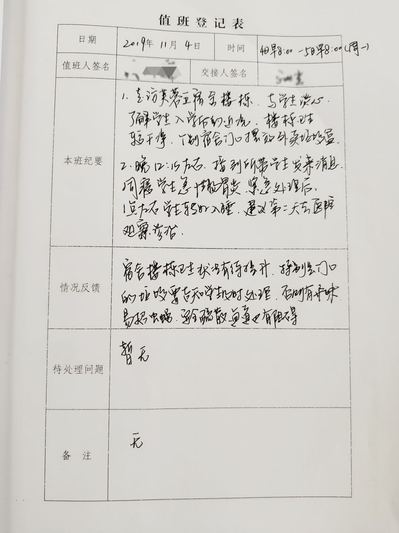 值班登记表
日期 2019年11月4日 时间 4日早8:00-5日早8:00(周一)
值班人签名 交接人签名
本班纪要
1. 走访芙蓉五宿舍楼栋，与学生谈心
了解学生入学后的近况，楼栋卫生
较干净，个别宿舍门口摆放外卖垃圾盒
2. 晚12:15左右，接到所带学生发来消息
同寝学生急性肠胃炎，紧急处理后
1点左右学生 入睡，建议第二天去医院
观察
情况反馈
宿舍楼栋卫生状况有待提升，特别是门口
的垃圾要告知学生及时处理，否则有异味
易招虫蝇，安全疏散通道也有阻碍
待处理问题
暂无
备注
无